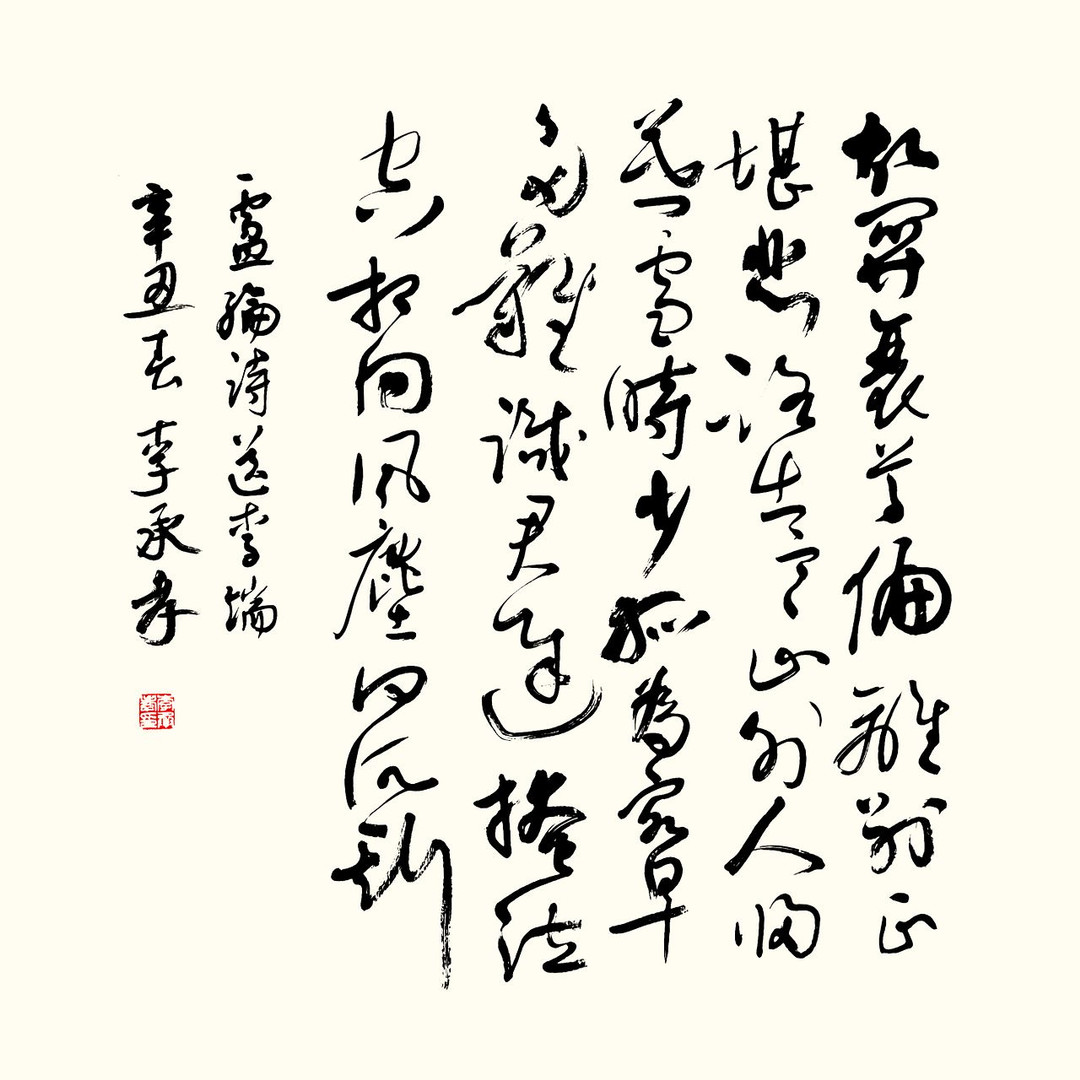 故關衰草偏離別正
堪悲路出寒山外人歸
暮雪時少孤為客早
多難識君遲掩泣
空相向風塵何所期
盧綸詩送李端
辛丑春 李承孝